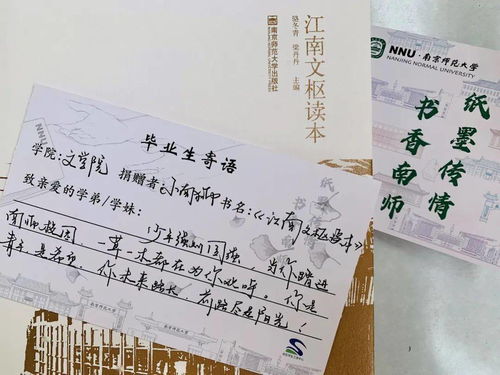 江南文枢读本
骆冬青 梁丹丹 主编
南京师范大学出版社
NNU·南京师范大学
NANJING NORMAL UNIVERSITY
纸墨传情
书香南师
NNU
毕业生寄语
学院：文学院 捐赠者：小郁郁 书名：《江南文枢读本》
致亲爱的学弟/学妹：
少年强则国强，当你踏进
南师校园，一草一木都在为你欢呼。你是
青春，是希望，你未来路长，前路尽是阳光！